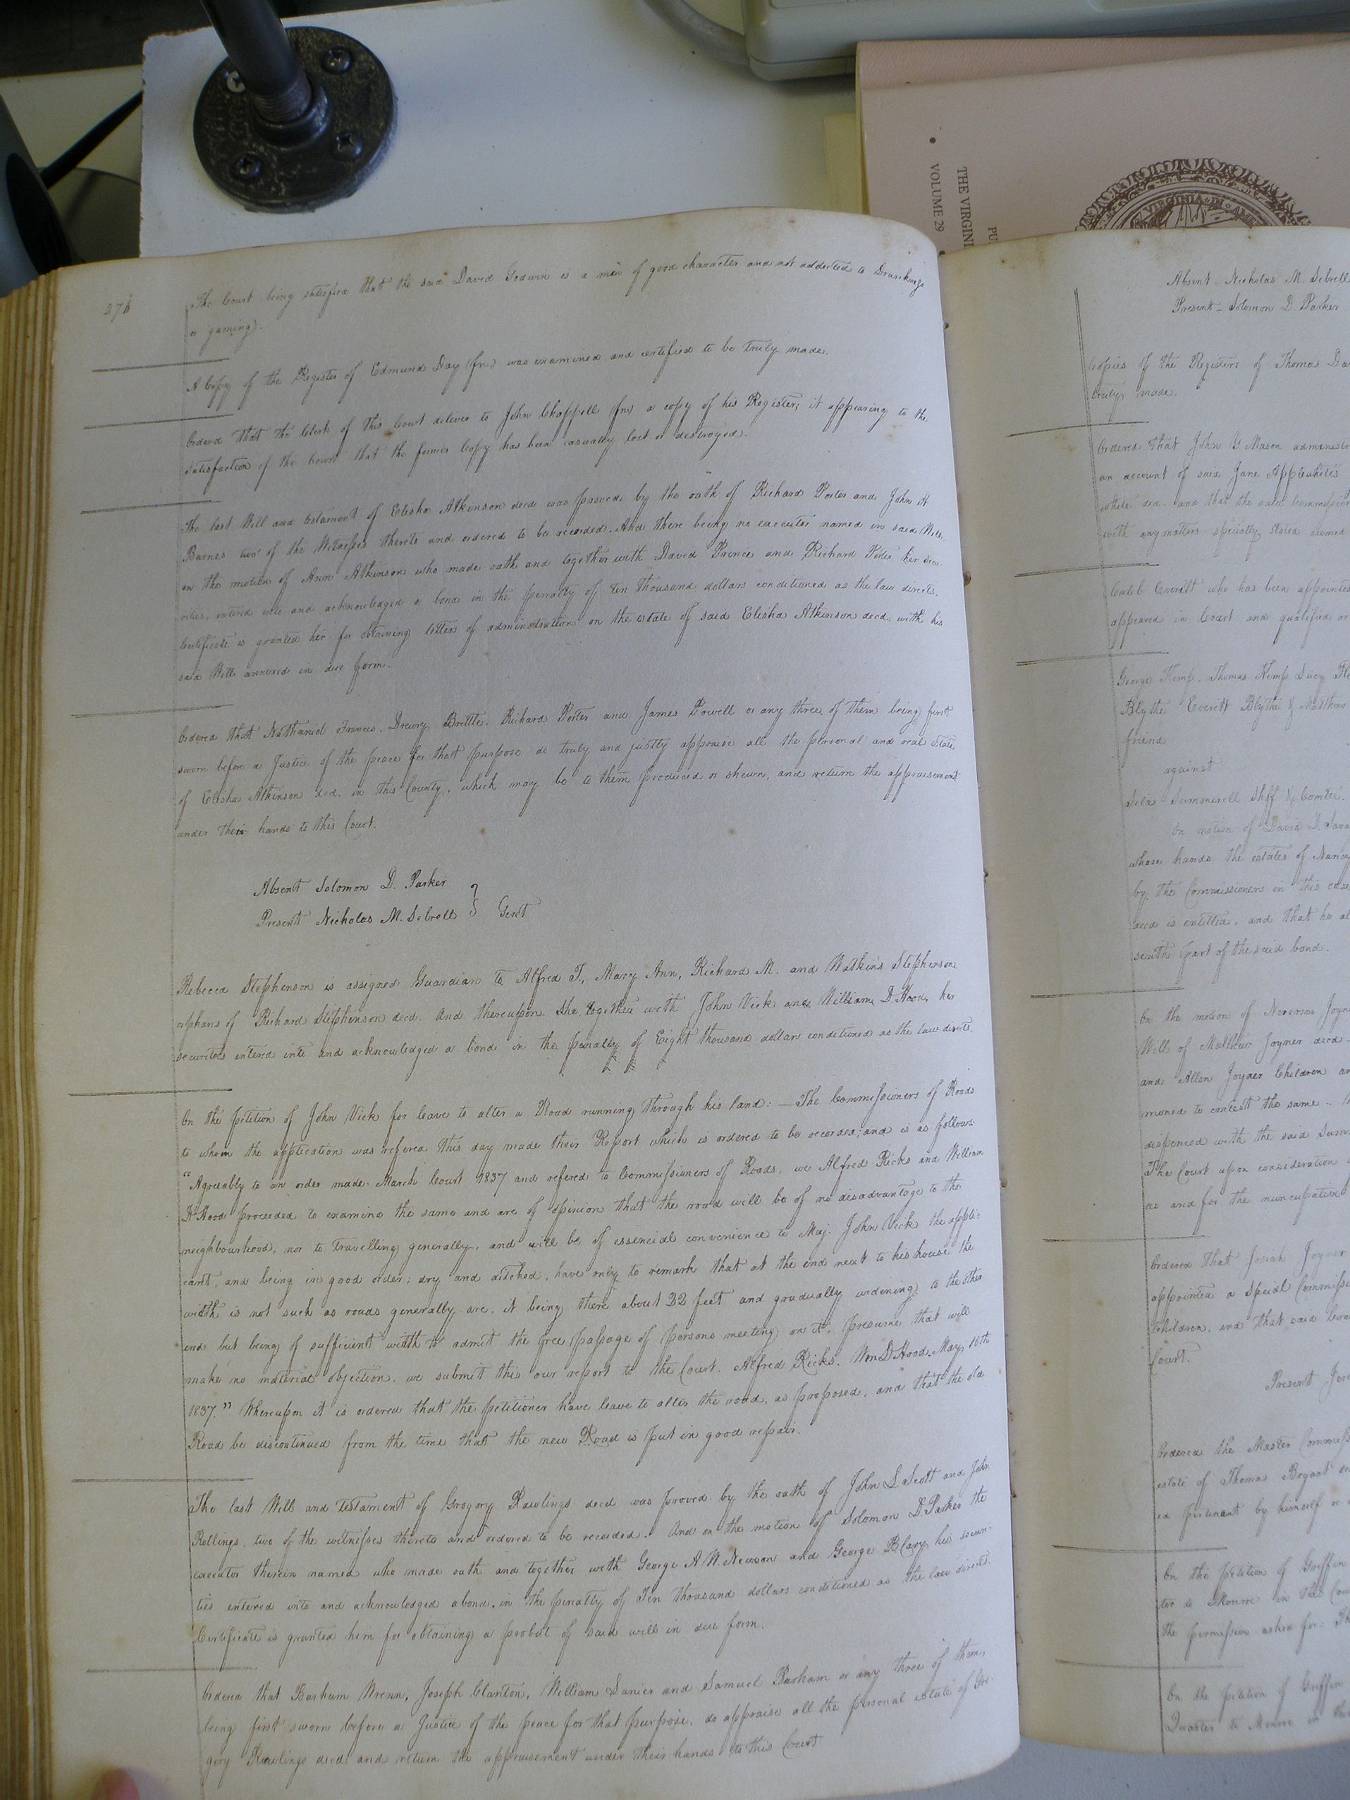 THE VIRGIN
VOLUME 29
PU
VIRGINIA IN AME
276
The Court being satisfied that the said David Godwin is a man of good character and not addicted to Drunkenness
or gaming.
A Copy of the Register of Edmund Day (fn) was examined and certified to be truly made.
Ordered that the Clerk of this Court deliver to John Chappell (fn) a copy of his Register, it appearing to the
satisfaction of the Court that the former Copy has been casually lost or destroyed.
The last Will and testament of Elisha Atkinson decd was proved by the oath of Richard Porter and John H.
Barnes two of the Witnesses thereto and ordered to be recorded. And there being no executor named in said Will,
on the motion of Ann Atkinson who made oath and together with David Prince and Richard Porter her secu-
rities, entered into and acknowledged a bond in the penalty of ten thousand dollars conditioned as the law directs,
Certificate is granted her for obtaining letters of administration on the estate of said Elisha Atkinson decd. with his
said Will annexed in due form.
Ordered that Nathaniel Francis, Drewry Brittle, Richard Porter and James Powell or any three of them being first
sworn before a Justice of the peace for that purpose do truly and justly appraise all the personal and real estate
of Elisha Atkinson decd. in this County, which may be to them produced or shewn, and return the appraisement
under their hands to this Court.
Absent Solomon D. Parker
Present Nicholas M. Sebrell } Gent
Rebecca Stephenson is assigned Guardian to Alfred T., Mary Ann, Richard M. and Watkins Stephenson
orphans of Richard Stephenson decd. And thereupon she together with John Vick and William D. Hood, her
securities entered into and acknowledged a bond in the penalty of Eight thousand dollars conditioned as the law directs.
On the petition of John Vick for leave to alter a Road running through his land: — The Commissioners of Roads
to whom the application was refered this day made their Report which is ordered to be recorded, and is as follows
"Agreeably to an order made March Court 1837 and refered to Commissioners of Roads, we Alfred Ricks and William
D. Hood proceeded to examine the same and are of opinion that the road will be of no disadvantage to the
neighbourhood, nor to travelling generally, and will be of essencial convenience to Maj. John Vick the appli-
cant, and being in good order, dry and ditched, have only to remark that at the end next to his house the
width is not such as roads generally are, it being there about 22 feet and gradually widening to the other
end but being of sufficient width to admit the free passage of persons meeting on it, presume that will
make no material objection. we submit this our report to the Court. Alfred Ricks. Wm D. Hood. May 16th
1837." Whereupon it is ordered that the petitioner have leave to alter the road, as proposed, and that the old
Road be discontinued from the time that the new Road is put in good repair.
The last Will and testament of Gregory Rawlings decd was proved by the oath of John L. Scott and John
Rollings two of the witnesses thereto and ordered to be recorded. And on the motion of Solomon D. Parker the
executor therein named who made oath and together with George A. W. Newsom and George B. Cary his securi-
ties entered into and acknowledged a bond, in the penalty of Ten thousand dollars conditioned as the law directs
Certificate is granted him for obtaining a probat of said will in due form.
Ordered that Barham Wrenn, Joseph Clanton, William Lanier and Samuel Parham or any three of them,
being first sworn before a Justice of the peace for that purpose, do appraise all the personal estate of Gre-
gory Rawlings decd and return the appraisement under their hands to this Court
Absent Nicholas M. Sebrell
Present Solomon D. Parker
Copies of the Registers of Thomas Da
truly made.
Ordered that John Y. Mason administ
an account of said Jane Applewhite's
white decd. and that the said commissi
with any matters specially stated
Caleb Everitt who has been appointed
appeared in Court and qualified
George Kemp, Thomas Kemp, Lucy
Blythe Everett Blythe &
friend
against
Silas Summerell Shff & Comtee.
On motion of David
whose hands the estates of Nancy
by the Commissioners in this case
decd is entitled, and that he
seventh part of the said bond.
On the motion of Joyner
Will of Matthew Joyner decd
and Allen Joyner Children an
moned to contest the same.
dispensed with the said Sum
The Court upon consideration
as and for the nuncupative
Ordered that Josiah Joyner
appointed a Special Commiss
children, and that said
Court.
Present
Ordered the Master Commiss
estate of Thomas Bryant
ed pertinent by himself or
On the petition of Griffin
in this Cou
the permission asked for.
On the petition of Griffin
Quarter to in this